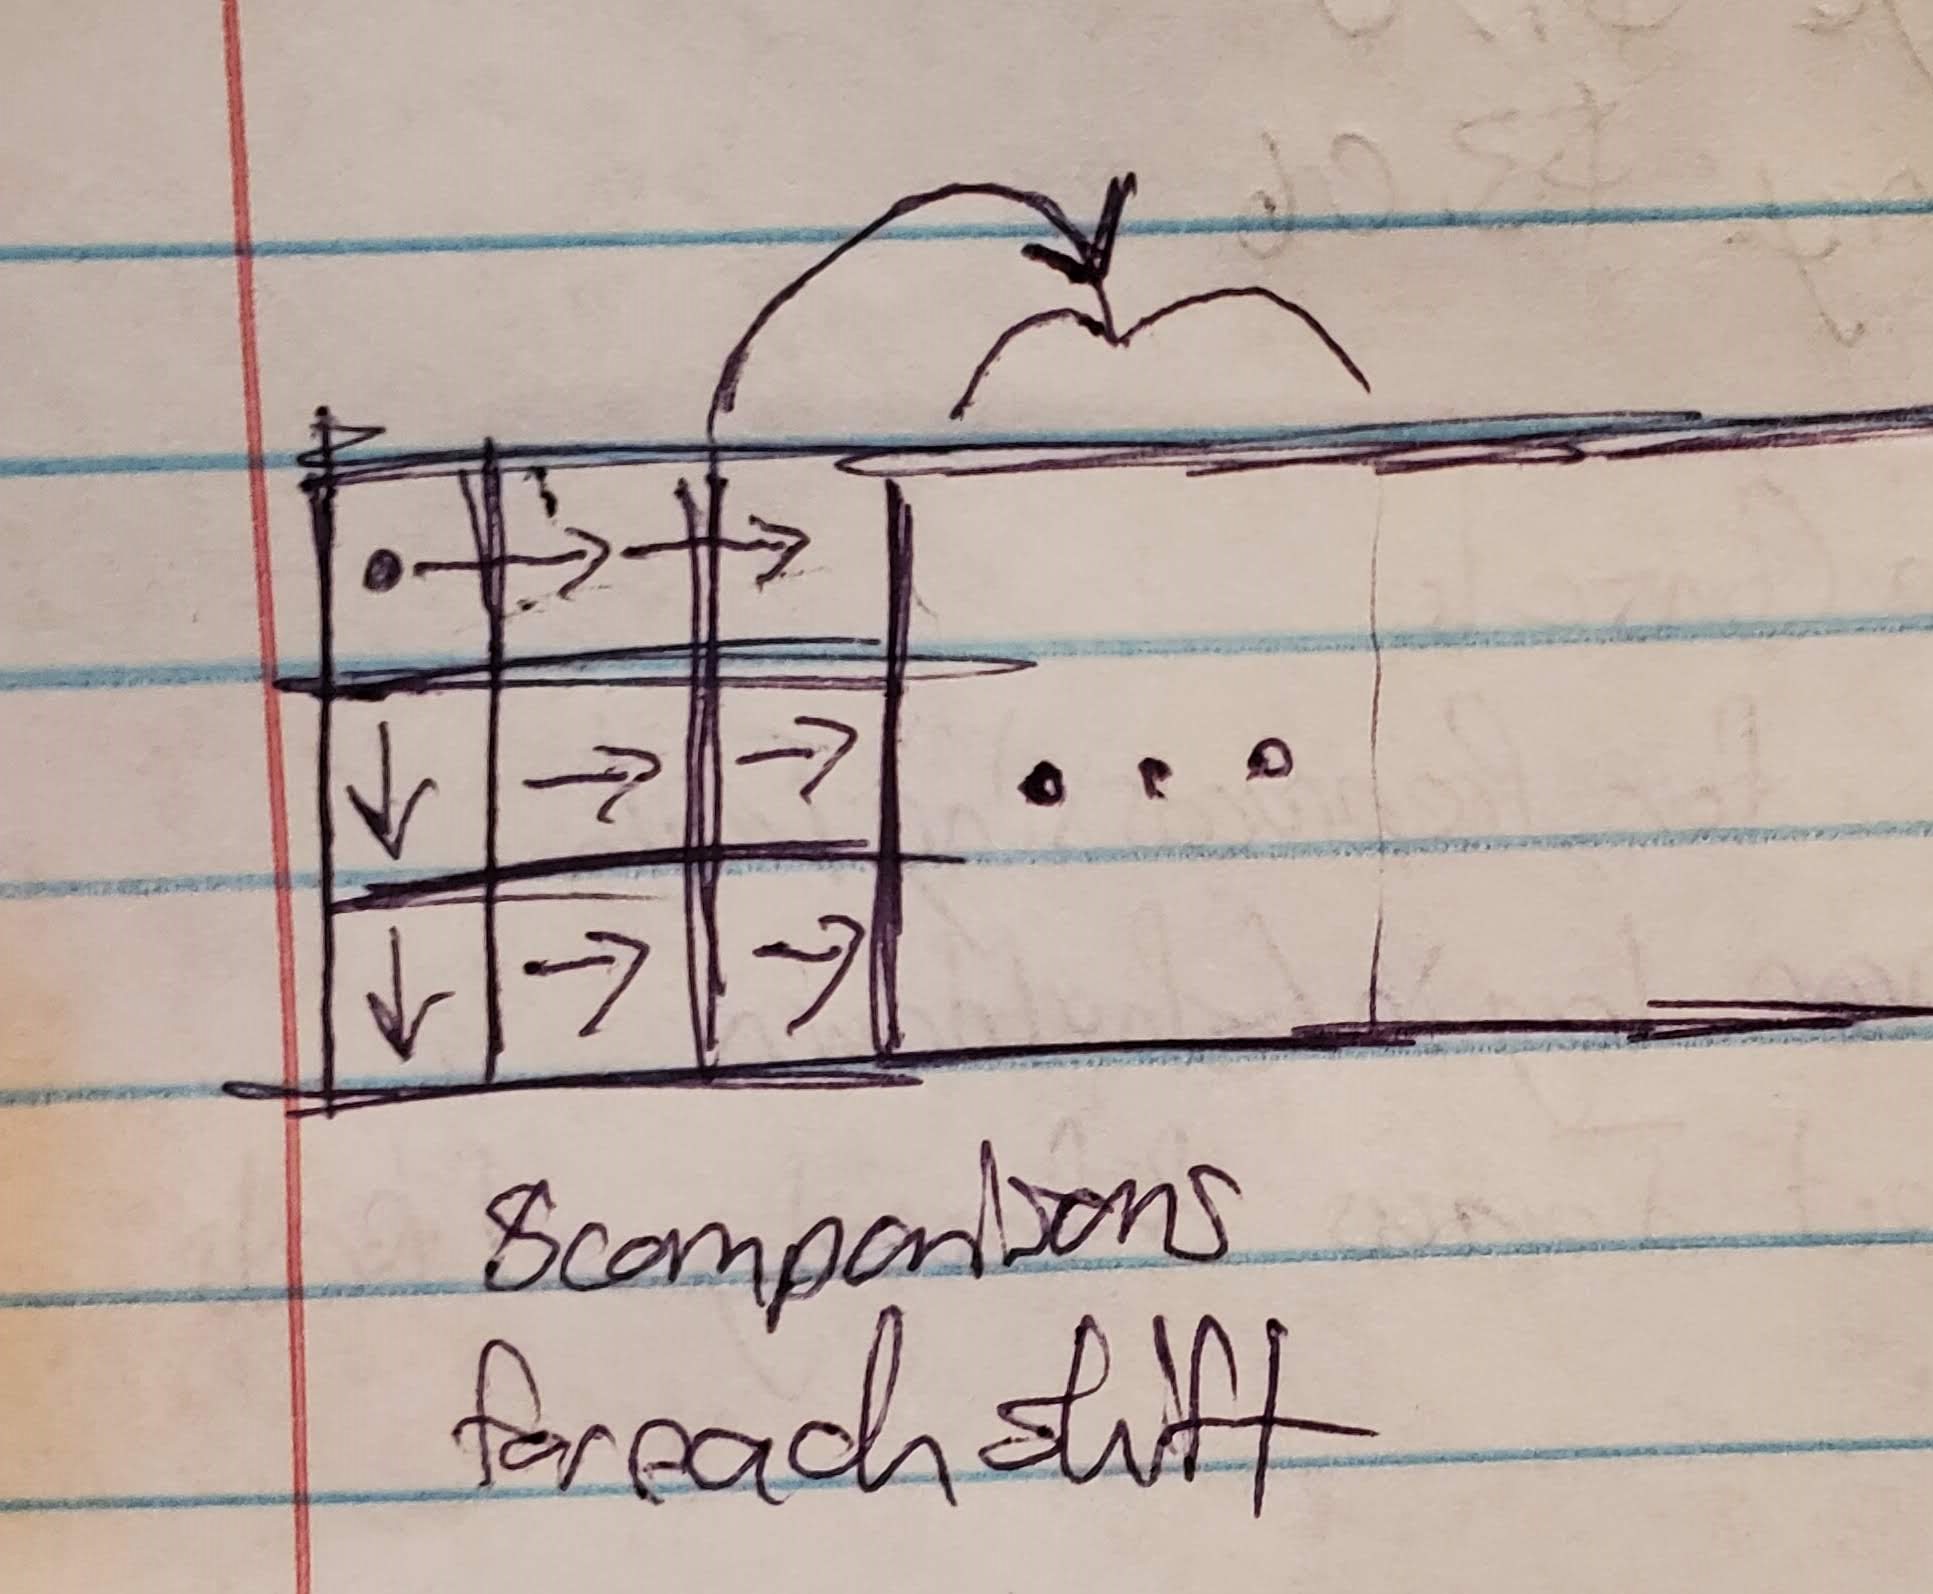 8 comparisons
for each shift